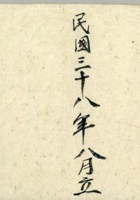 民國三十八年八月立